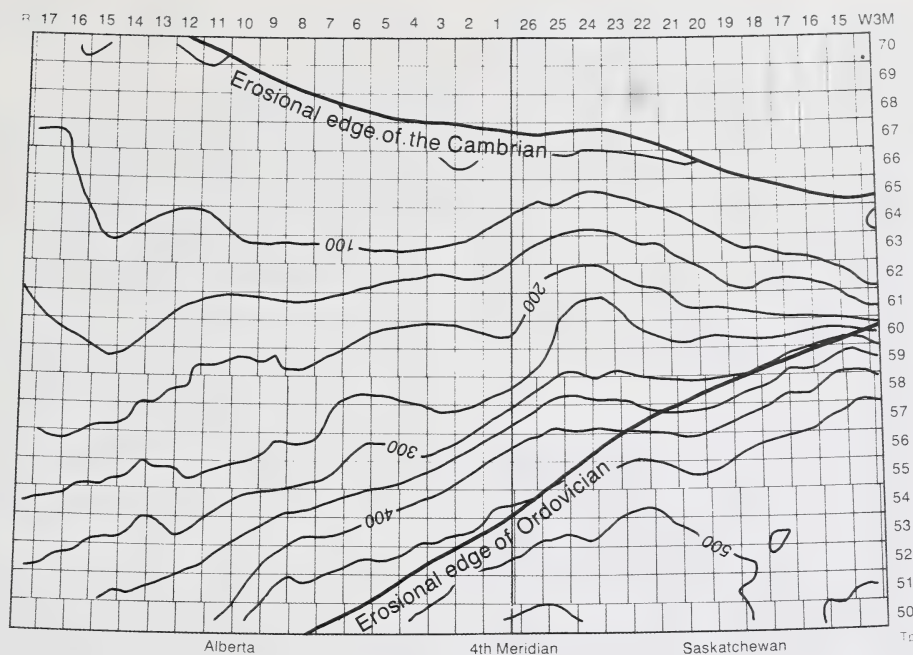 R 17 16 15 14 13 12 11 10 9 8 7 6 5 4 3 2 1 26 25 24 23 22 21 20 19 18 17 16 15 W3M
70
69
68
67
66
65
64
63
62
61
60
59
58
57
56
55
54
53
52
51
50
Tp
Erosional edge of the Cambrian
100
200
300
400
500
Erosional edge of Ordovician
Alberta 4th Meridian Saskatchewan